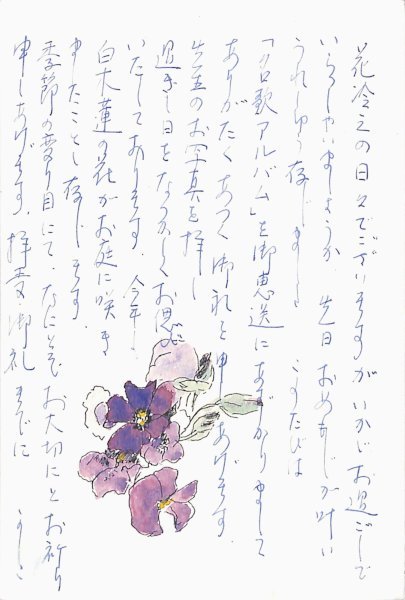 花冷えの日々でございますが いかがお過ごしで
いらっしゃいましょうか 先日 おめもじが叶い
うれしゅう存じました このたびは
「名歌アルバム」を御恵送にあずかりまして
ありがたく あつく 御礼を申しあげます.
先生のお写真を拝し
過ぎし日をなつかしくお思い
いたしております. 今年も
白木蓮の花がお庭に咲き
ましたことと存じます.
季節の変り目にて. なにとぞ お大切にとお祈り
申しあげます. 拝受御礼までに